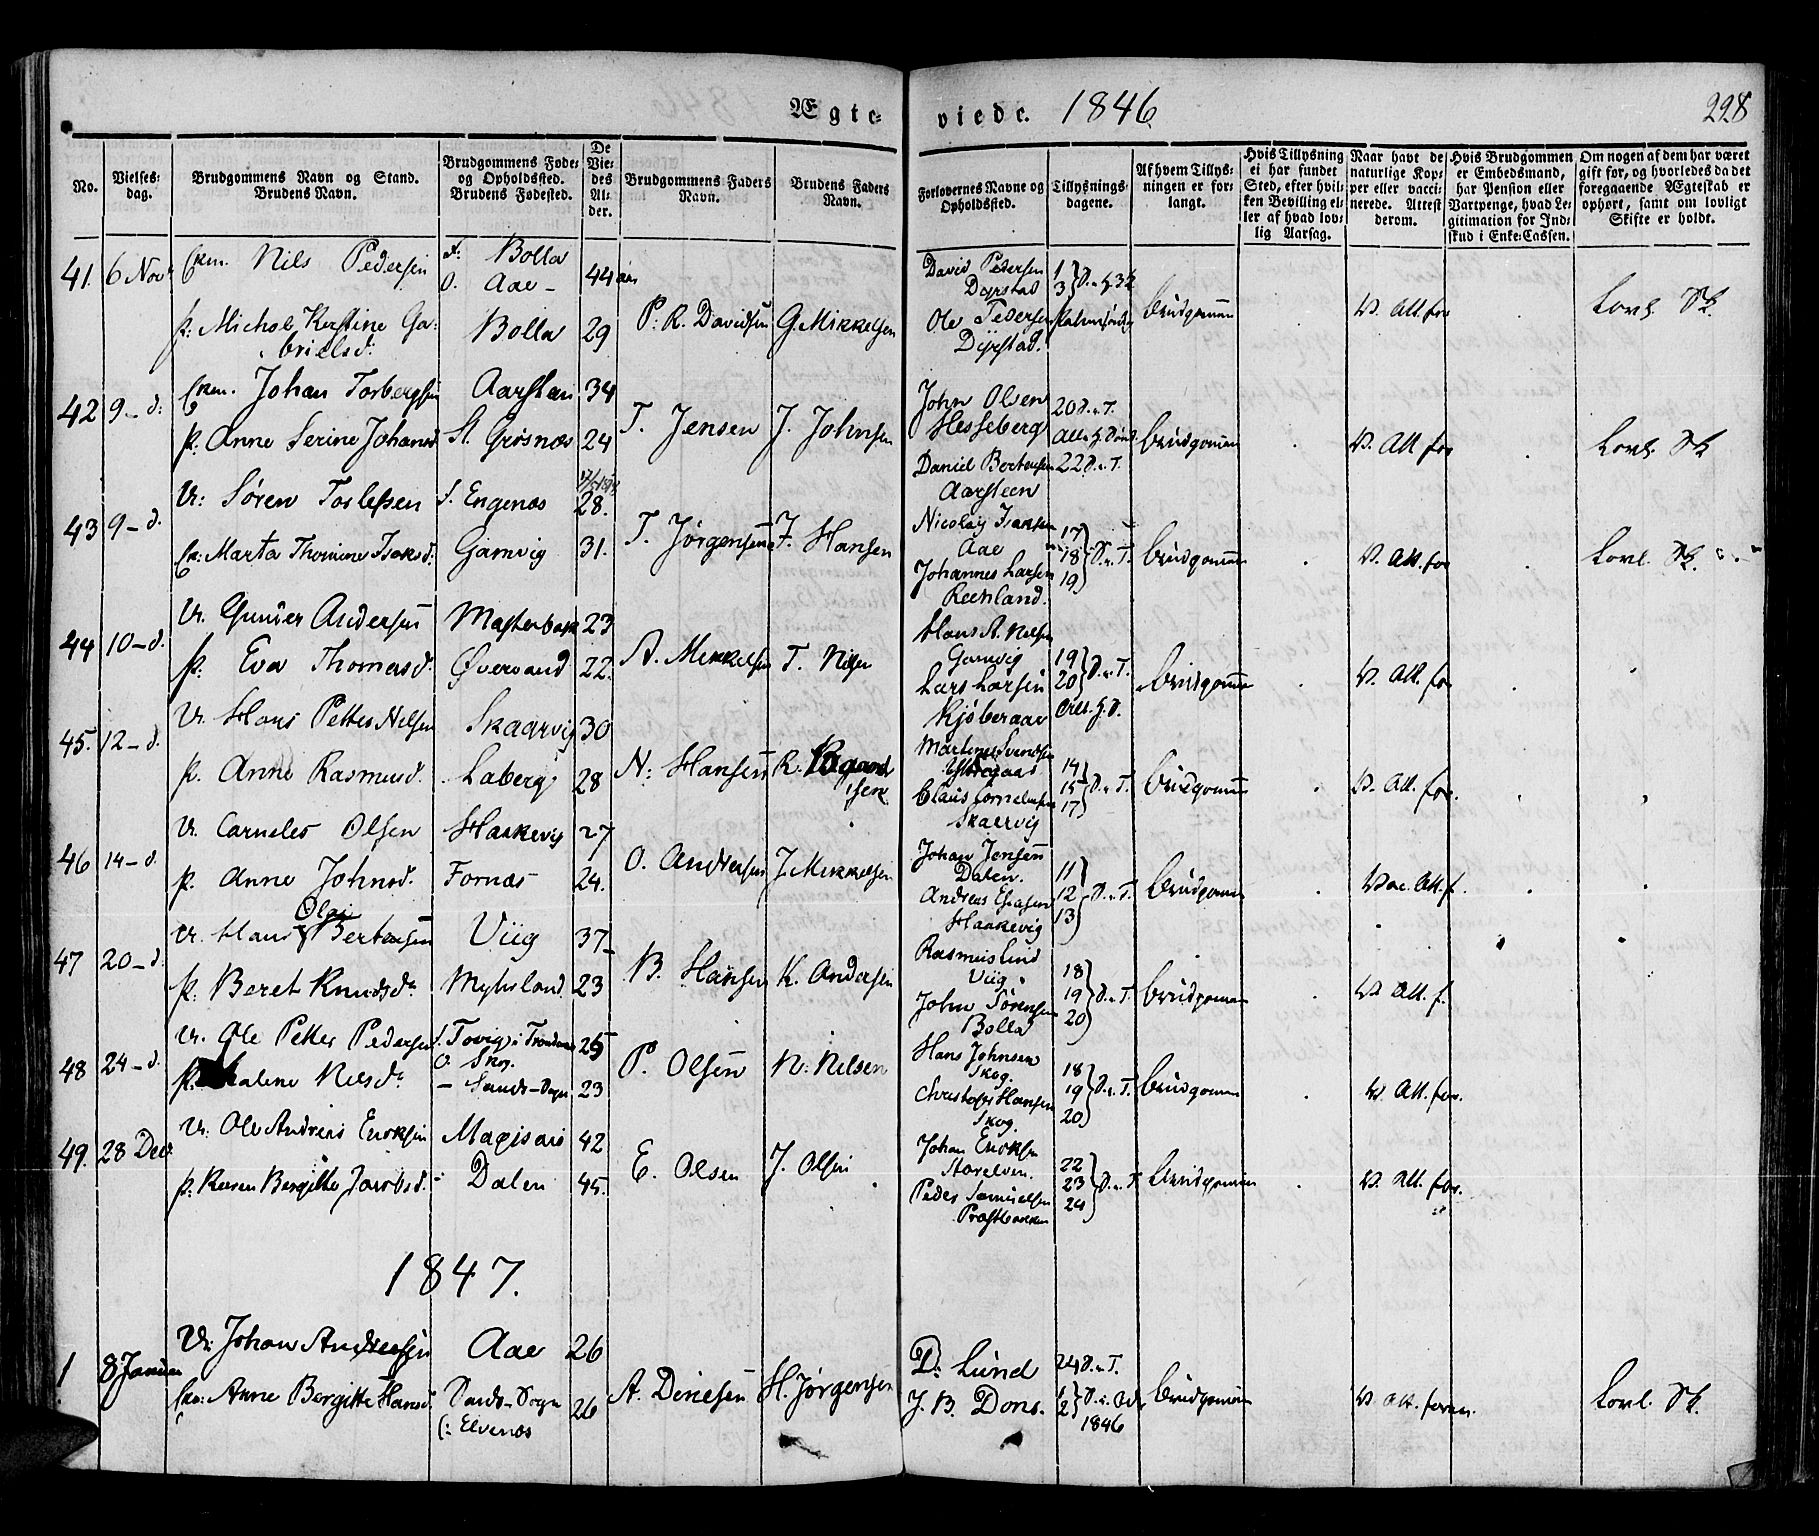 Ægte- viede. 1846 228
No.
Vielses-
dag.
Brudgommens Navn og Stand.
Brudens Navn.
Brudgommens Føde-
og Opholdssted.
Brudens Fødested.
De
Vie-
des
Al-
der.
Brudgommens Faders
Navn.
Brudens Faders
Navn.
Forlovernes Navne og
Opholdssted.
Tillysnings-
dagene.
Af hvem Tillys-
ningen er for-
langt.
Hvis Tillysning
ei har fundet
Sted, efter hvil-
ken Bevilling el-
ler af hvad lov-
lig Aarsag.
Naar havt de
naturlige Kop-
per eller vacci-
nerede. Attest
derom.
Hvis Brudgommen
er Embedsmand,
har Pension eller
Vartpenge, hvad Le-
gitimation for Ind-
skud i Enke-Cassen.
Om nogen af dem har været
gift før, og hvorledes da det
foregaaende Ægteskab er
ophørt, samt om lovligt
Skifte er holdt.
41. 6 Novr Ekm. Nils Pedersen F. Bolla
O. Aae 44 aar
P: Michol Kerstine Ga-
brielsd. Bolla 29 P: R. Davidsen G. Mikkelsen
David Pedersen
Dyrstad
Ole Pedersen
Dyrstad. 1 3 Brudgommen V. Att. for Lovl. Sk.
42 9 - d: Ekm. Johan Torbergsen Aarsten 34
P: Anne Serine Johansd. St. Grøsnæs 24 T. Jensen J. Johnsen
John Olsen
Hesseberg
Daniel Bertensen
Aarsteen 20 D. v. T.
22 D. v. T. Brudgommen V. Att for Lovl. Sk
43 9 - d. U: Søren Torlefsen S. Engenæs 28.
E: Marta Thomine Isaksd. Gamvig 31. T. Jørgensen J. Hansen
Nicolay Isaksen
Aae
Johannes Larsen
Reenland. 17 18 19 D. v. T. Brudgommen V. Att. for Lovl. Sk.
44 10 - d. U. Gunder Andersen Masterbak 23
P. Eva Thomasd. Øvervand 22. A. Mikkelsen T. Nilsen
Hans A. Nilsen
Gamvig
Lars Larsen
Kjøberaar 19 20 D. v. T. Brudgommen V. Att. for
45. 12 - d. U. Hans Petter Nilsen Skaarvig 30
P. Anne Rasmusd. Laberg 28 N: Hansen R.
Martenus Svendsen
Claus Cornelusen
Skaarvig 14 15 17 D. v. T. Brudgommen V. Att. for.
46 14 - d. U. Carneles Olsen Haakevig 27
P. Anne Johnsd. Fornæs 24. O. Andersen J. Mikkelsen
Johan Jensen
Dalen.
Andreas Esaiasen
Haakevig 11 12 13 D. v. T. Brudgommen Vac. Att. f.
47 20 - d. U. Hans Olai Bertensen Viig 37
P. Beret Knudsd. Myhrland 23 B. Hansen K. Andersen
Rasmus Lind
Viig.
John Sørensen
Bolla 18 19 20 D. v. T. Brudgommen V. Att. f.
48 24 - d. U. Ole Petter Pedersen f. Tovig i Trondenæs
O. Skog. 25
P. Malene Nilsd. - Sands-Sogn 23 P. Olsen N. Nilsen
Hans Johnsen
Skog.
Christoffer Hansen
Skog. 18 19 20 D. v. T. Brudgommen V. Att. for.
49. 28 Decr U. Ole Andreas Ericksen Magisais 42
P. Karen Bergitte Jacobsd. - Dalen 45. E. Olsen J. Olsen
Johan Ericksen
Storelven.
Peder Samuelsen
Præstbakken 22 23 24 D. v. T. Brudgommen V. Att. for.
1847.
1 8 Januar U: Johan Andreasen Aae 26
Ekm: Anne Bergitte Hansd. Sands-Sogn
(: Elvenæs 26 A. Dinesen H. Jørgensen
D: Lund
J. B. Dons. 24 D. v. T.
1 2 1846 Brudgommen V. Att. foran. Lovl. Sk.